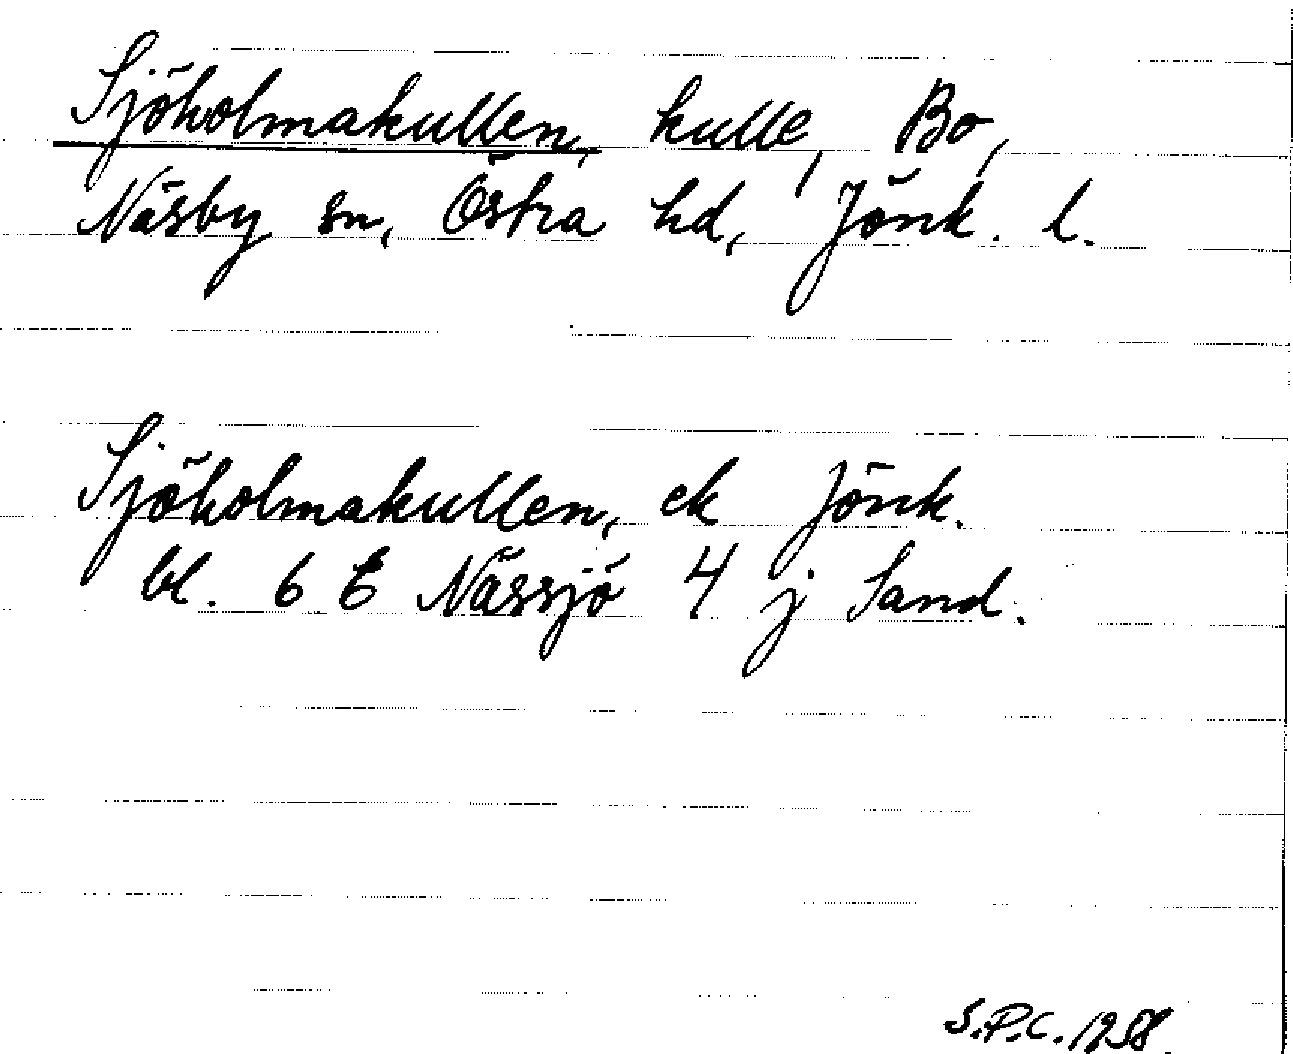 Sjöholmakullen, kulle, Bo,
Näsby sn, Östra hd, Jönk. l.
Sjöholmakullen, ek Jönk.
bl. 6 E Nässjö 4 j Sand.
S.P.C. 1958.